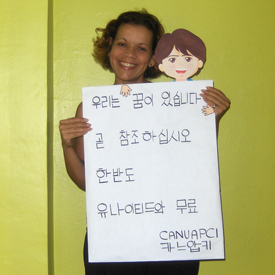 우리는 꿈이 있습니다
곧 참조하십시오
한반도
유나이티드와 무료
CANUAPCI
카느압키